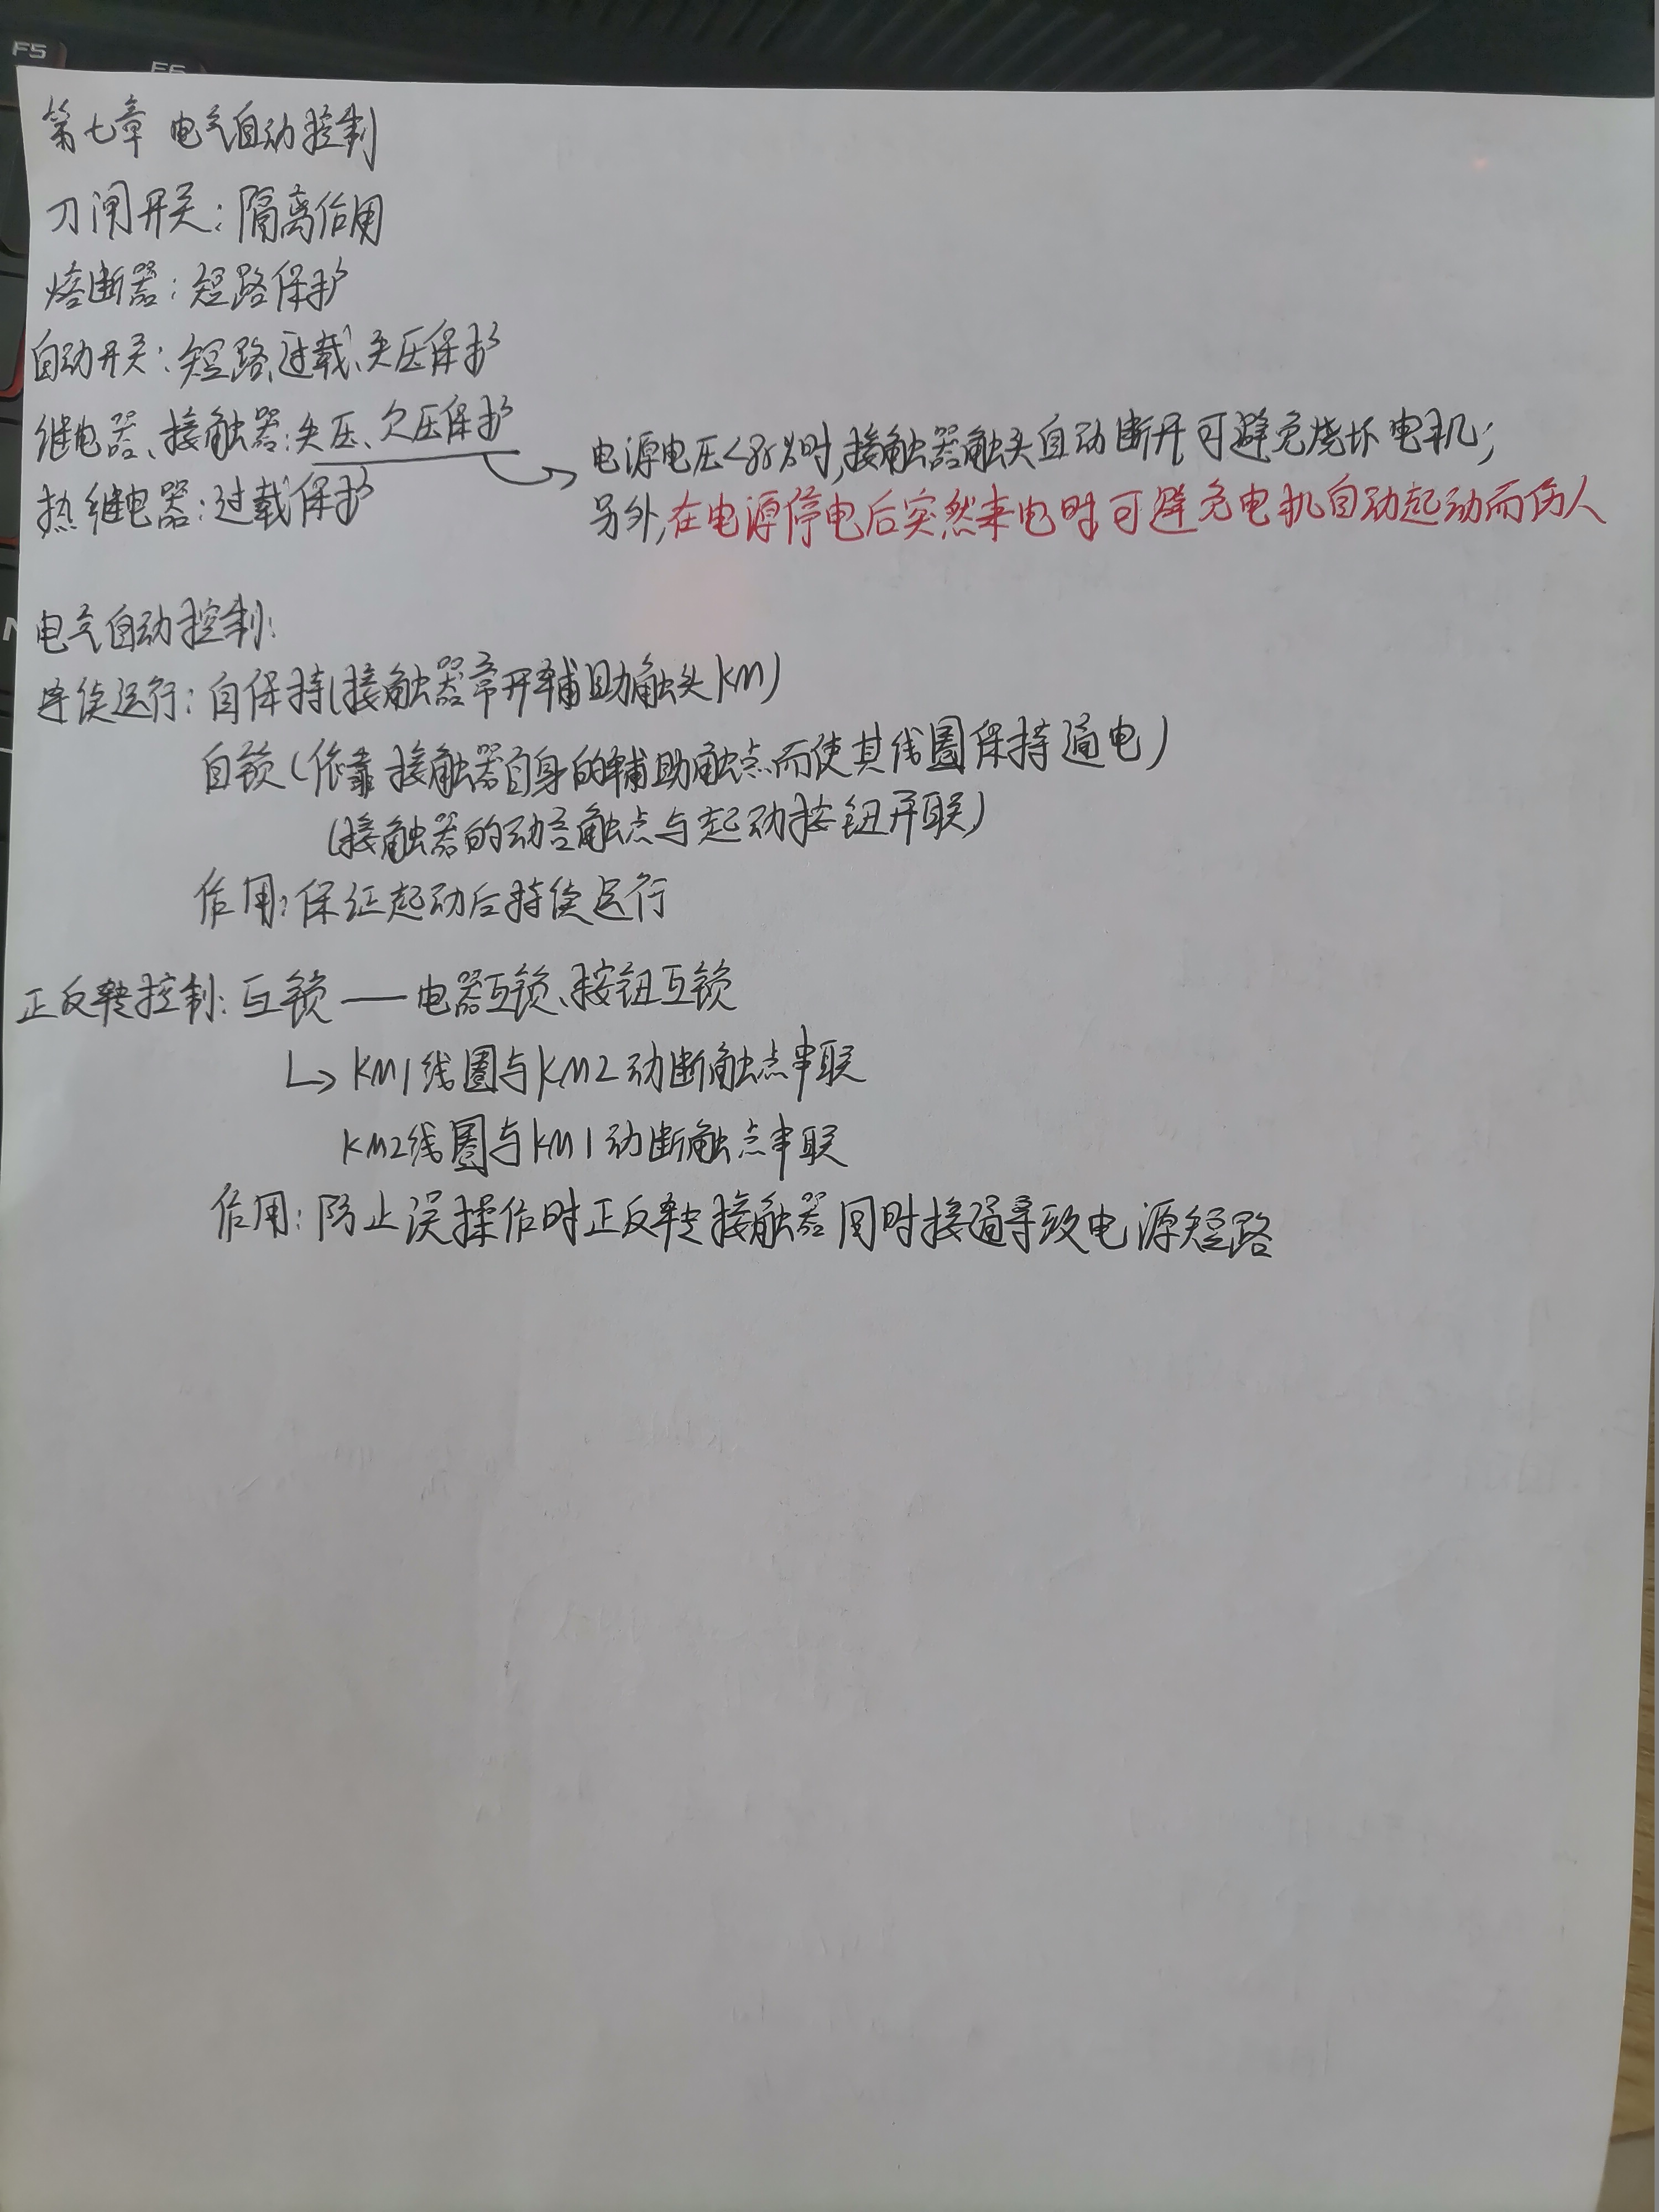 F5
F6
第七章 电气自动控制
刀闸开关:隔离作用
熔断器:短路保护
自动开关:短路、过载、失压保护
继电器、接触器:失压、欠压保护
电源电压<85%时,接触器触头自动断开可避免烧坏电机;
热继电器:过载保护
另外,在电源停电后突然来电时可避免电机自动起动而伤人
电气自动控制:
连续运行:自保持(接触器常开辅助触头KM)
自锁(依靠接触器自身的辅助触点而使其线圈保持通电)
(接触器的动合触点与起动按钮并联)
作用:保证起动后持续运行
正反转控制:互锁——电器互锁、按钮互锁
↳ KM1线圈与KM2动断触点串联
KM2线圈与KM1动断触点串联
作用:防止误操作时正反转接触器同时接通导致电源短路